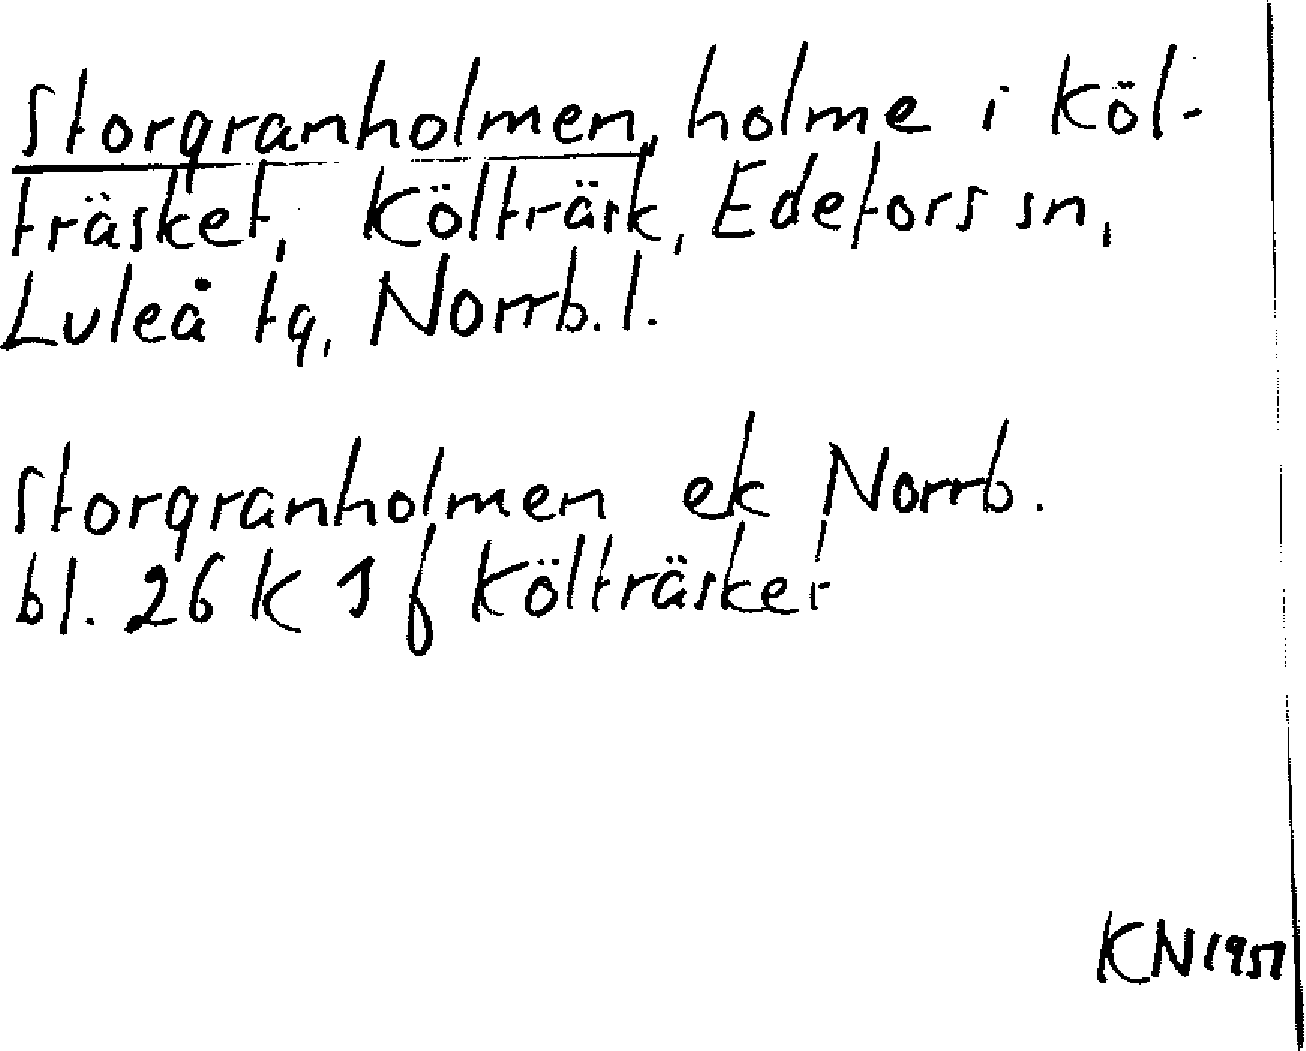 Storgranholmen, holme i Köl-
träsket, Költräsk, Edefors sn,
Luleå tg, Norrb.l.
Storgranholmen ek Norrb.
bl. 26 K 1 f Költräsket
KN 1951